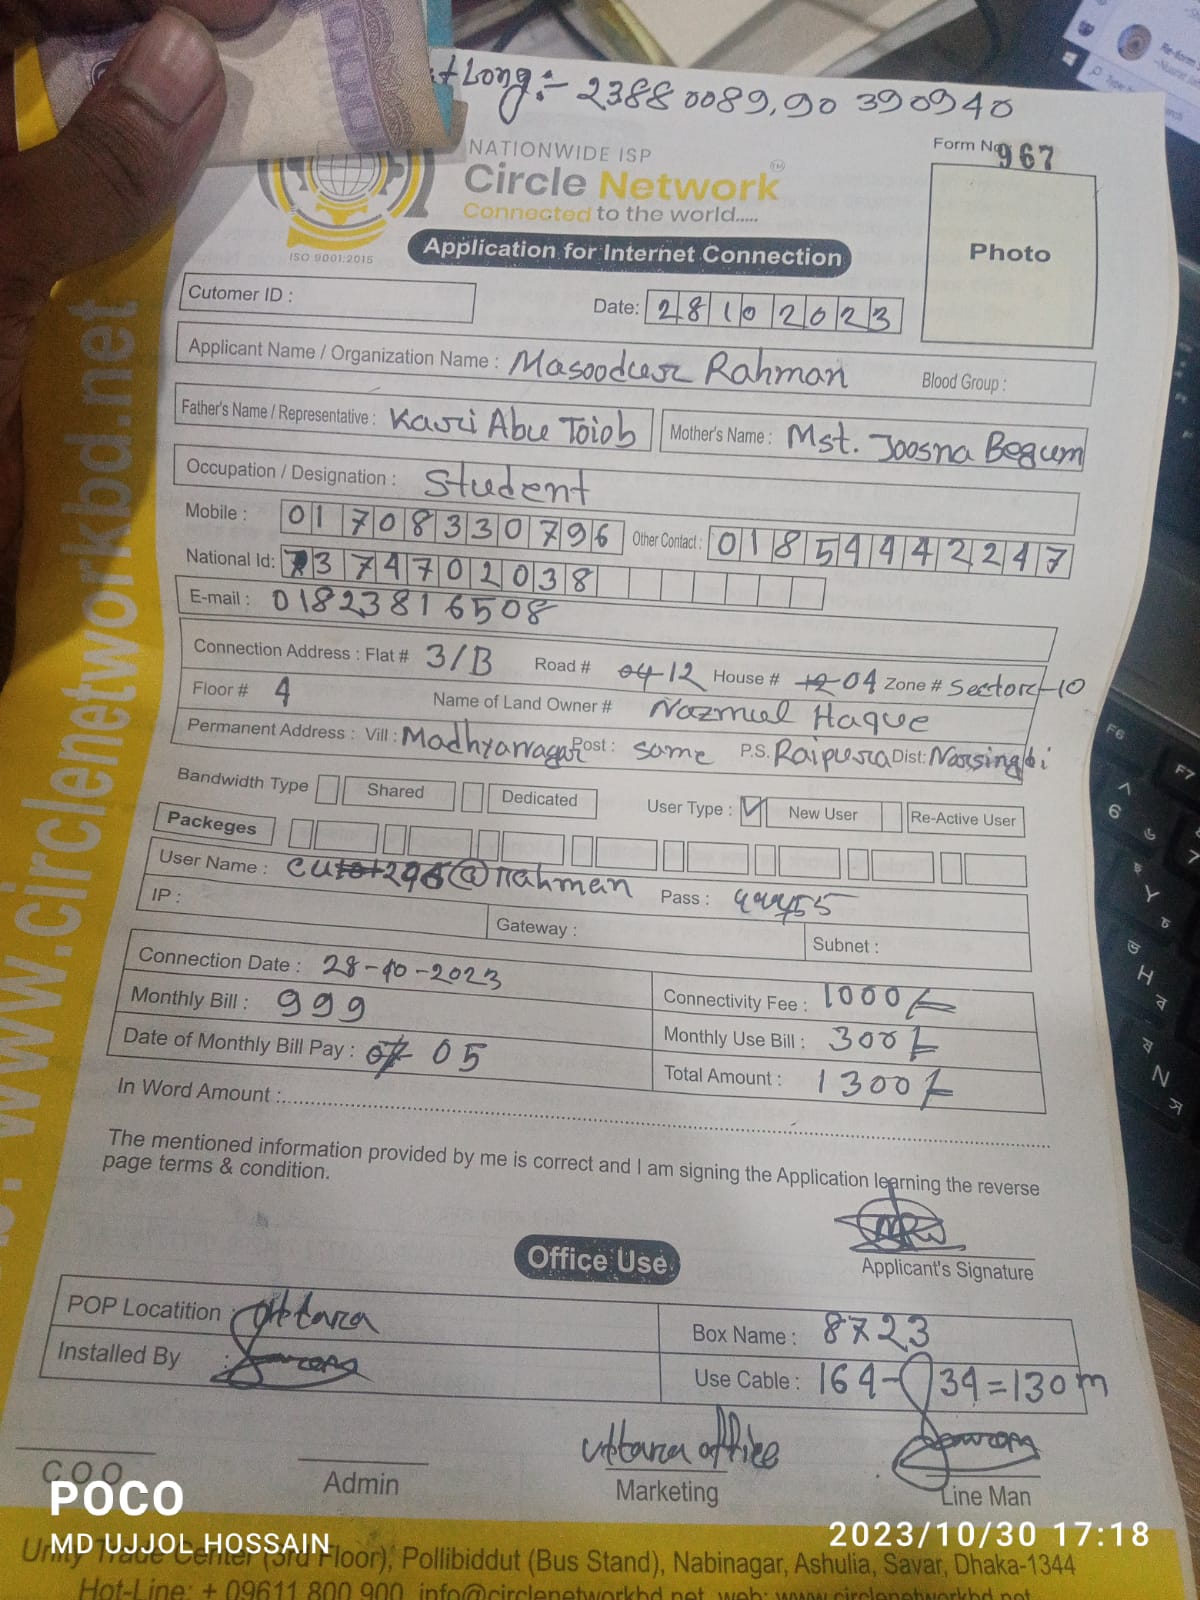 t Long:- 23880089,90390940
NATIONWIDE ISP
Circle Network TM
Connected to the world.....
ISO 9001:2015
Form No 967
Photo
Application for Internet Connection
Cutomer ID :
Date: 28102023
Applicant Name / Organization Name : Masoodur Rahman Blood Group :
Father's Name / Representative : Kawri Abu Toiob Mother's Name : Mst. Joosna Begum
Occupation / Designation : Student
Mobile : 01708330796 Other Contact : 01854442247
National Id: 374702038
E-mail : 01823816508
Connection Address : Flat # 3/B Road # 04 12 House # 12 04 Zone # Sector-10
Floor # 4 Name of Land Owner # Nazmul Haque
Permanent Address : Vill : Madhyanagar Post : same P.S. Raipura Dist: Narsingbi
Bandwidth Type Shared Dedicated User Type : ✓ New User Re-Active User
Packeges
User Name : @rahman Pass :
IP : Gateway : Subnet :
Connection Date : 28-10-2023 Connectivity Fee : 1000/-
Monthly Bill : 999 Monthly Use Bill : 300/-
Date of Monthly Bill Pay : 07 05 Total Amount : 1300/-
In Word Amount :
The mentioned information provided by me is correct and I am signing the Application learning the reverse
page terms & condition.
Applicant's Signature
Office Use
POP Locatition : Uttara Box Name : 8723
Installed By : Use Cable : 164-34=130m
Uttara office
C.O.O Admin Marketing Line Man
POCO
MD UJJOL HOSSAIN 2023/10/30 17:18
Unity Trade Center (3rd Floor), Pollibiddut (Bus Stand), Nabinagar, Ashulia, Savar, Dhaka-1344
Hot-Line: + 09611 800 900, info@circlenetworkbd.net, web: www.circlenetworkbd.net
www.circlenetworkbd.net